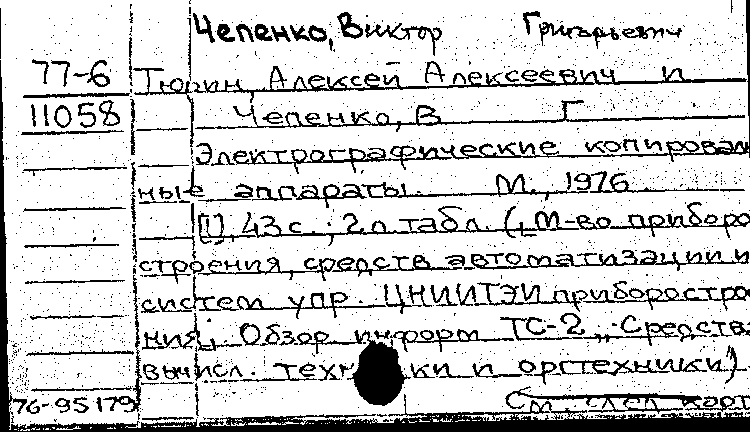 Чепенко, Виктор Григорьевич
77-6 Тюрин, Алексей Алексеевич и
11058 Чепенко, В Г
Электрографические копироваль
ные аппараты. М., 1976.
[1], 43 с.; 2 л. табл. (М-во приборо
строения, средств автоматизации и
систем упр. ЦНИИТЭИ приборострое
ния; Обзор информ ТС-2 "Средства
вычисл. техники и оргтехники)
76-95179 См. след карт